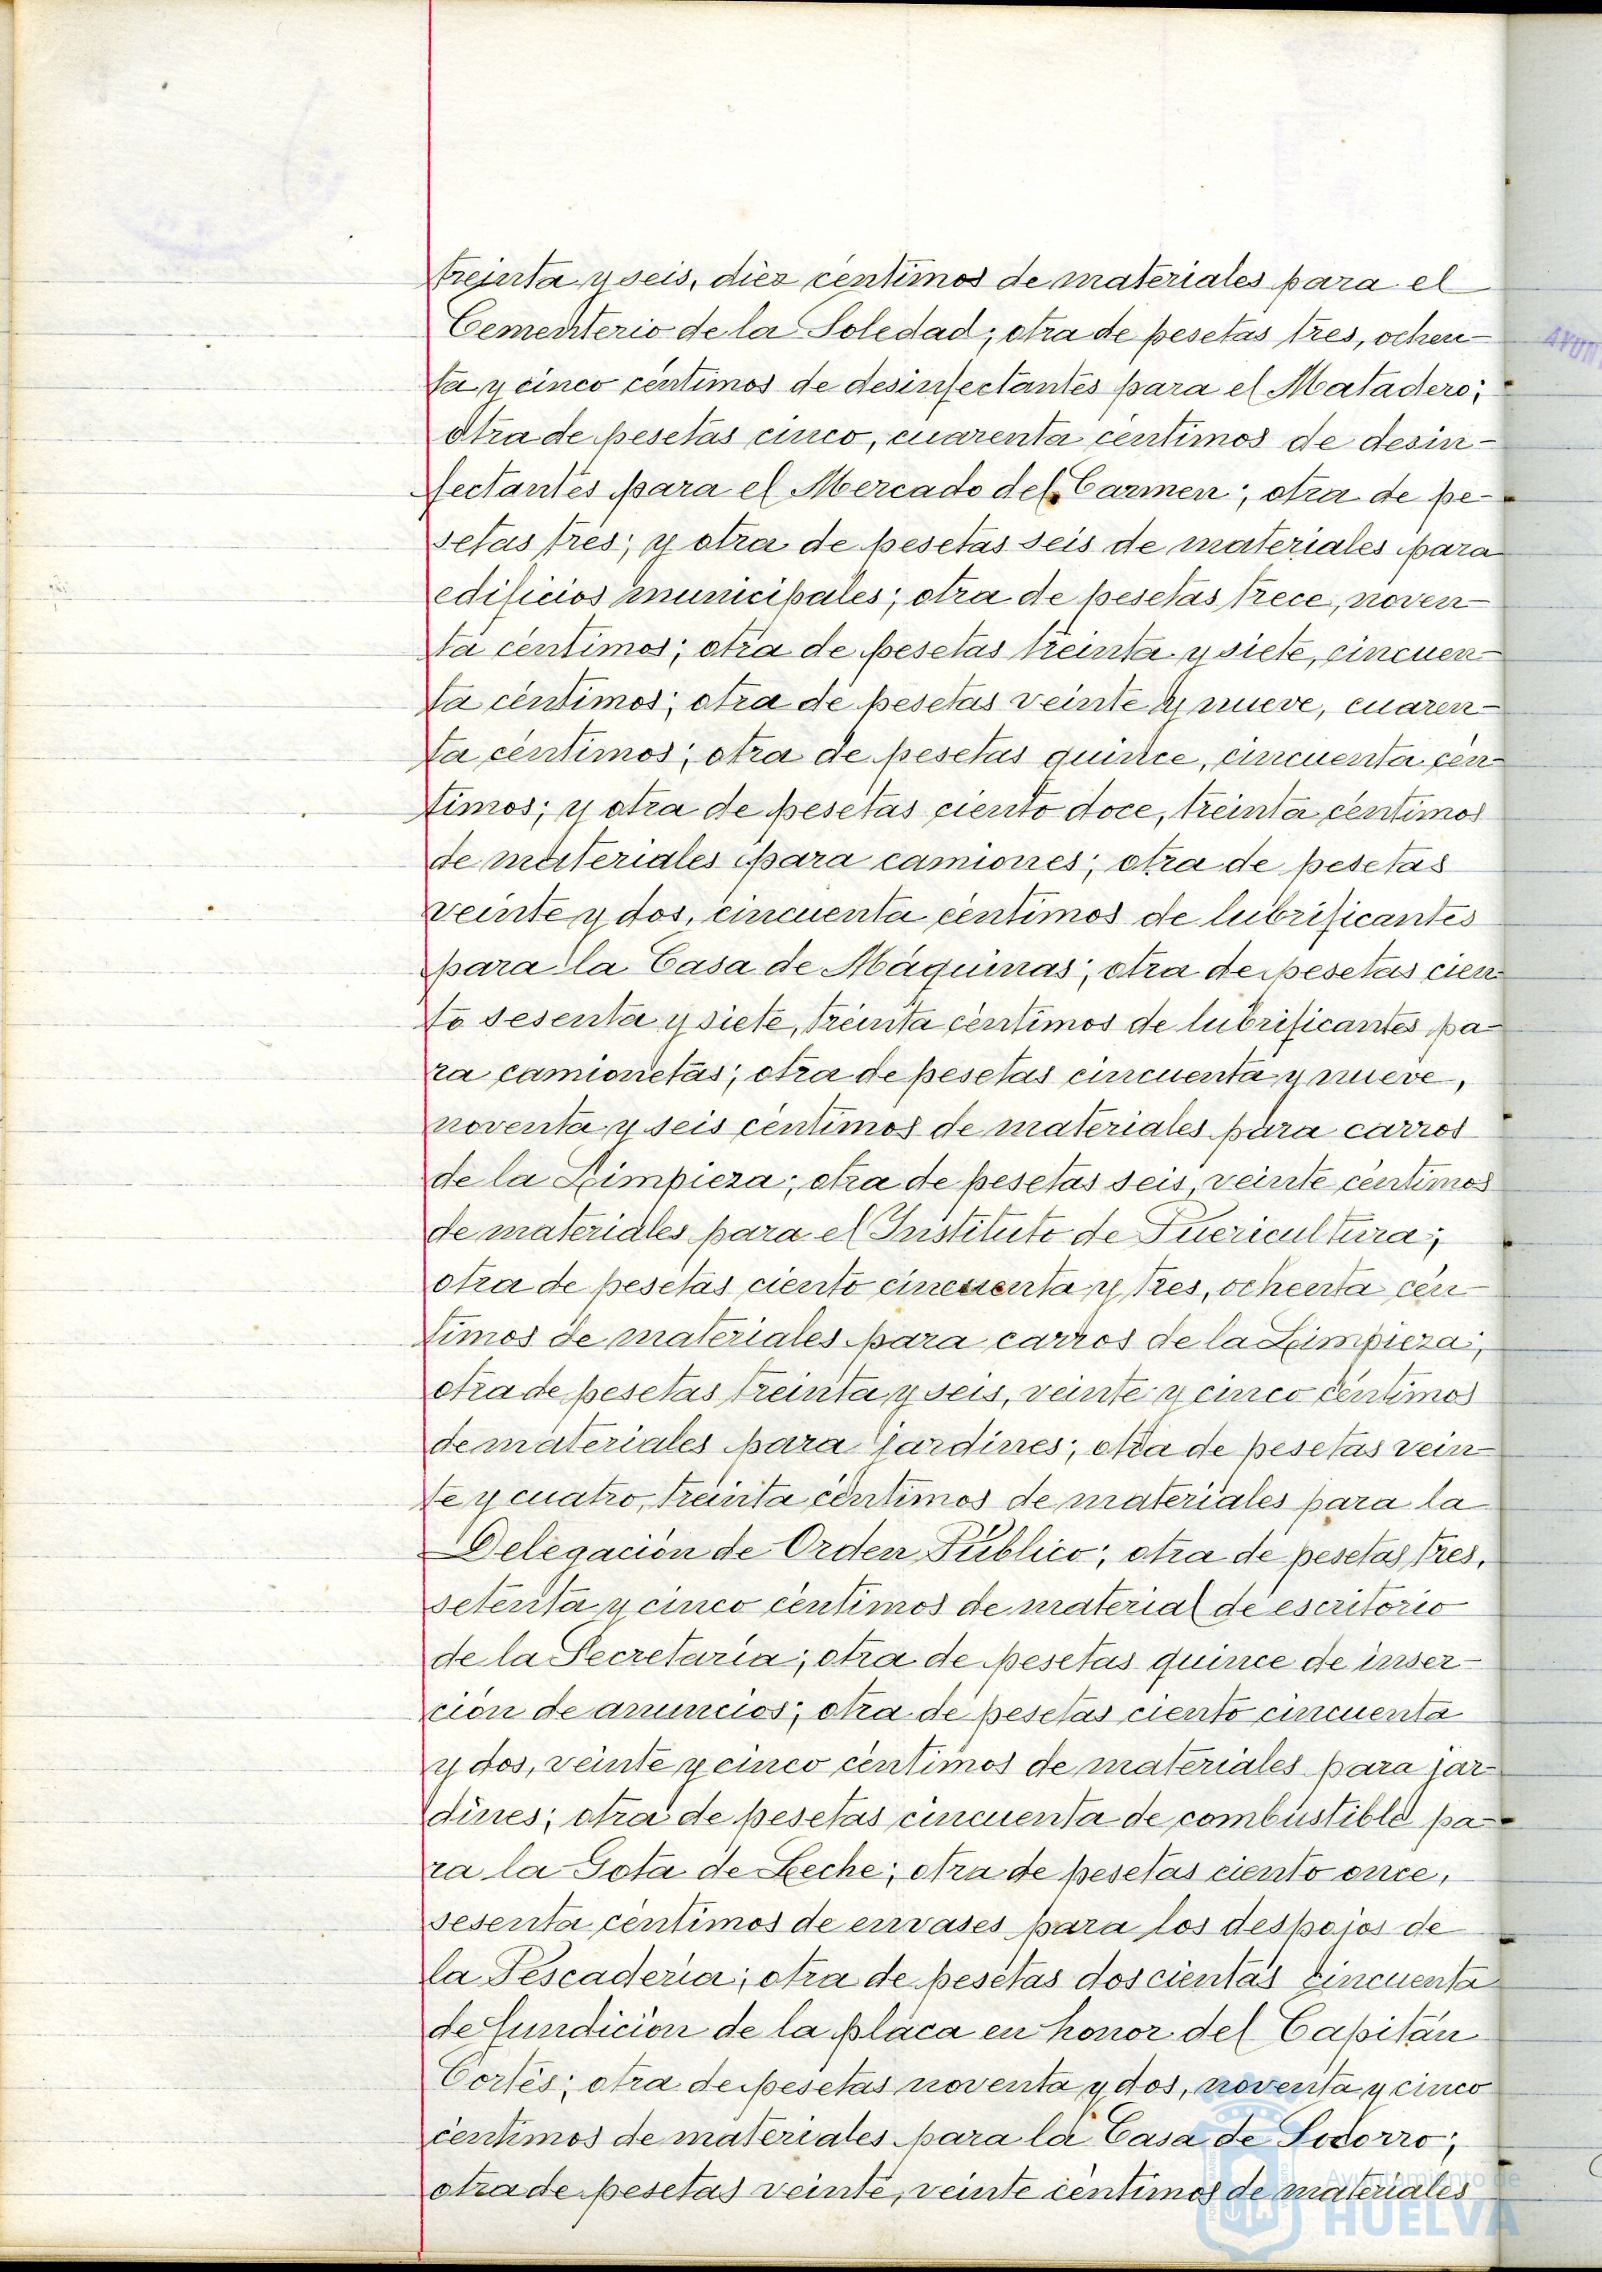 treinta y seis, diez centimos de materiales para el
Cementerio de la Soledad; otra de pesetas tres, ochen-
ta y cinco céntimos de desinfectantes para el Matadero;
otra de pesetas cinco, cuarenta centimos de desin-
fectantes para el Mercado del Carmen; otra de pe-
setas tres; y otra de pesetas seis de materiales para
edificios municipales; otra de pesetas trece, noven-
ta céntimos; otra de pesetas treinta y siete, cincuen-
ta céntimos; otra de pesetas veinte y nueve, cuaren-
ta céntimos; otra de pesetas quince, cincuenta cén-
timos; y otra de pesetas ciento doce, treinta céntimos
de materiales para camiones; otra de pesetas
veinte y dos, cincuenta céntimos de lubrificantes
para la Casa de Máquinas; otra de pesetas cien-
to sesenta y siete, treinta céntimos de lubrificantes pa-
ra camionetas; otra de pesetas cincuenta y nueve,
noventa y seis céntimos de materiales para carros
de la Limpieza; otra de pesetas seis, veinte céntimos
de materiales para el Instituto de Puericultura;
otra de pesetas ciento cincuenta y tres, ochenta cén-
timos de materiales para carros de la Limpieza;
otra de pesetas treinta y seis, veinte y cinco céntimos
de materiales para jardines; otra de pesetas vein-
te y cuatro, treinta céntimos de materiales para la
Delegación de Orden Público; otra de pesetas tres,
setenta y cinco céntimos de material de escritorio
de la Secretaría; otra de pesetas quince de inser-
ción de anuncios; otra de pesetas ciento cincuenta
y dos, veinte y cinco céntimos de materiales para jar-
dines; otra de pesetas cincuenta de combustible pa-
ra la Gota de Leche; otra de pesetas ciento once,
sesenta céntimos de envases para los despojos de
la Pescadería; otra de pesetas doscientas cincuenta
de fundición de la placa en honor del Capitán
Cortés; otra de pesetas noventa y dos, noventa y cinco
céntimos de materiales para la Casa de Socorro;
otra de pesetas veinte, veinte céntimos de materiales
Ayuntamiento de
HUELVA